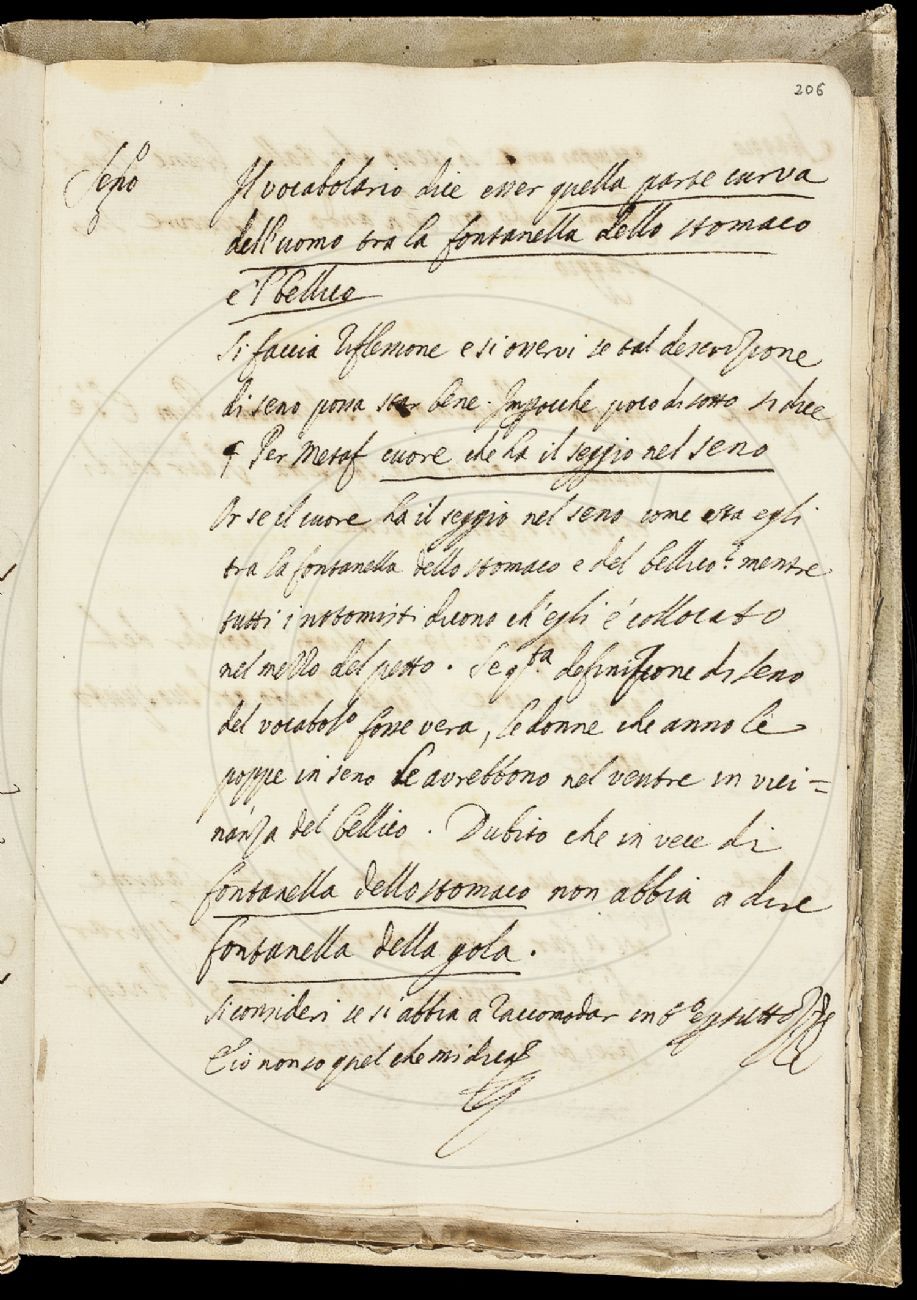 206
Seno
Il vocabolario dice esser quella parte curva
dell'uomo tra la fontanella dello stomaco
e 'l bellico
Si faccia riflessione e si osservi se tal descrizione
di seno possa star bene. Impocche poco di sotto si dice
Per Metaf cuore che ha il seggio nel seno
Or se il cuore ha il seggio nel seno come sta egli
tra la fontanella dello stomaco e del bellico? mentre
tutti i notomisti dicono ch'egli è collocato
nel mezzo del petto. Se qsta definizione di seno
del vocabolo fosse vera, le donne che anno le
poppe in seno le avrebbono nel ventre in vici=
nanza del bellico. Dubito che in vece di
fontanella dello stomaco non abbia a dire
fontanella della gola.
Si consideri se si abbia a raccomodar in
e io non so quel che mi dica